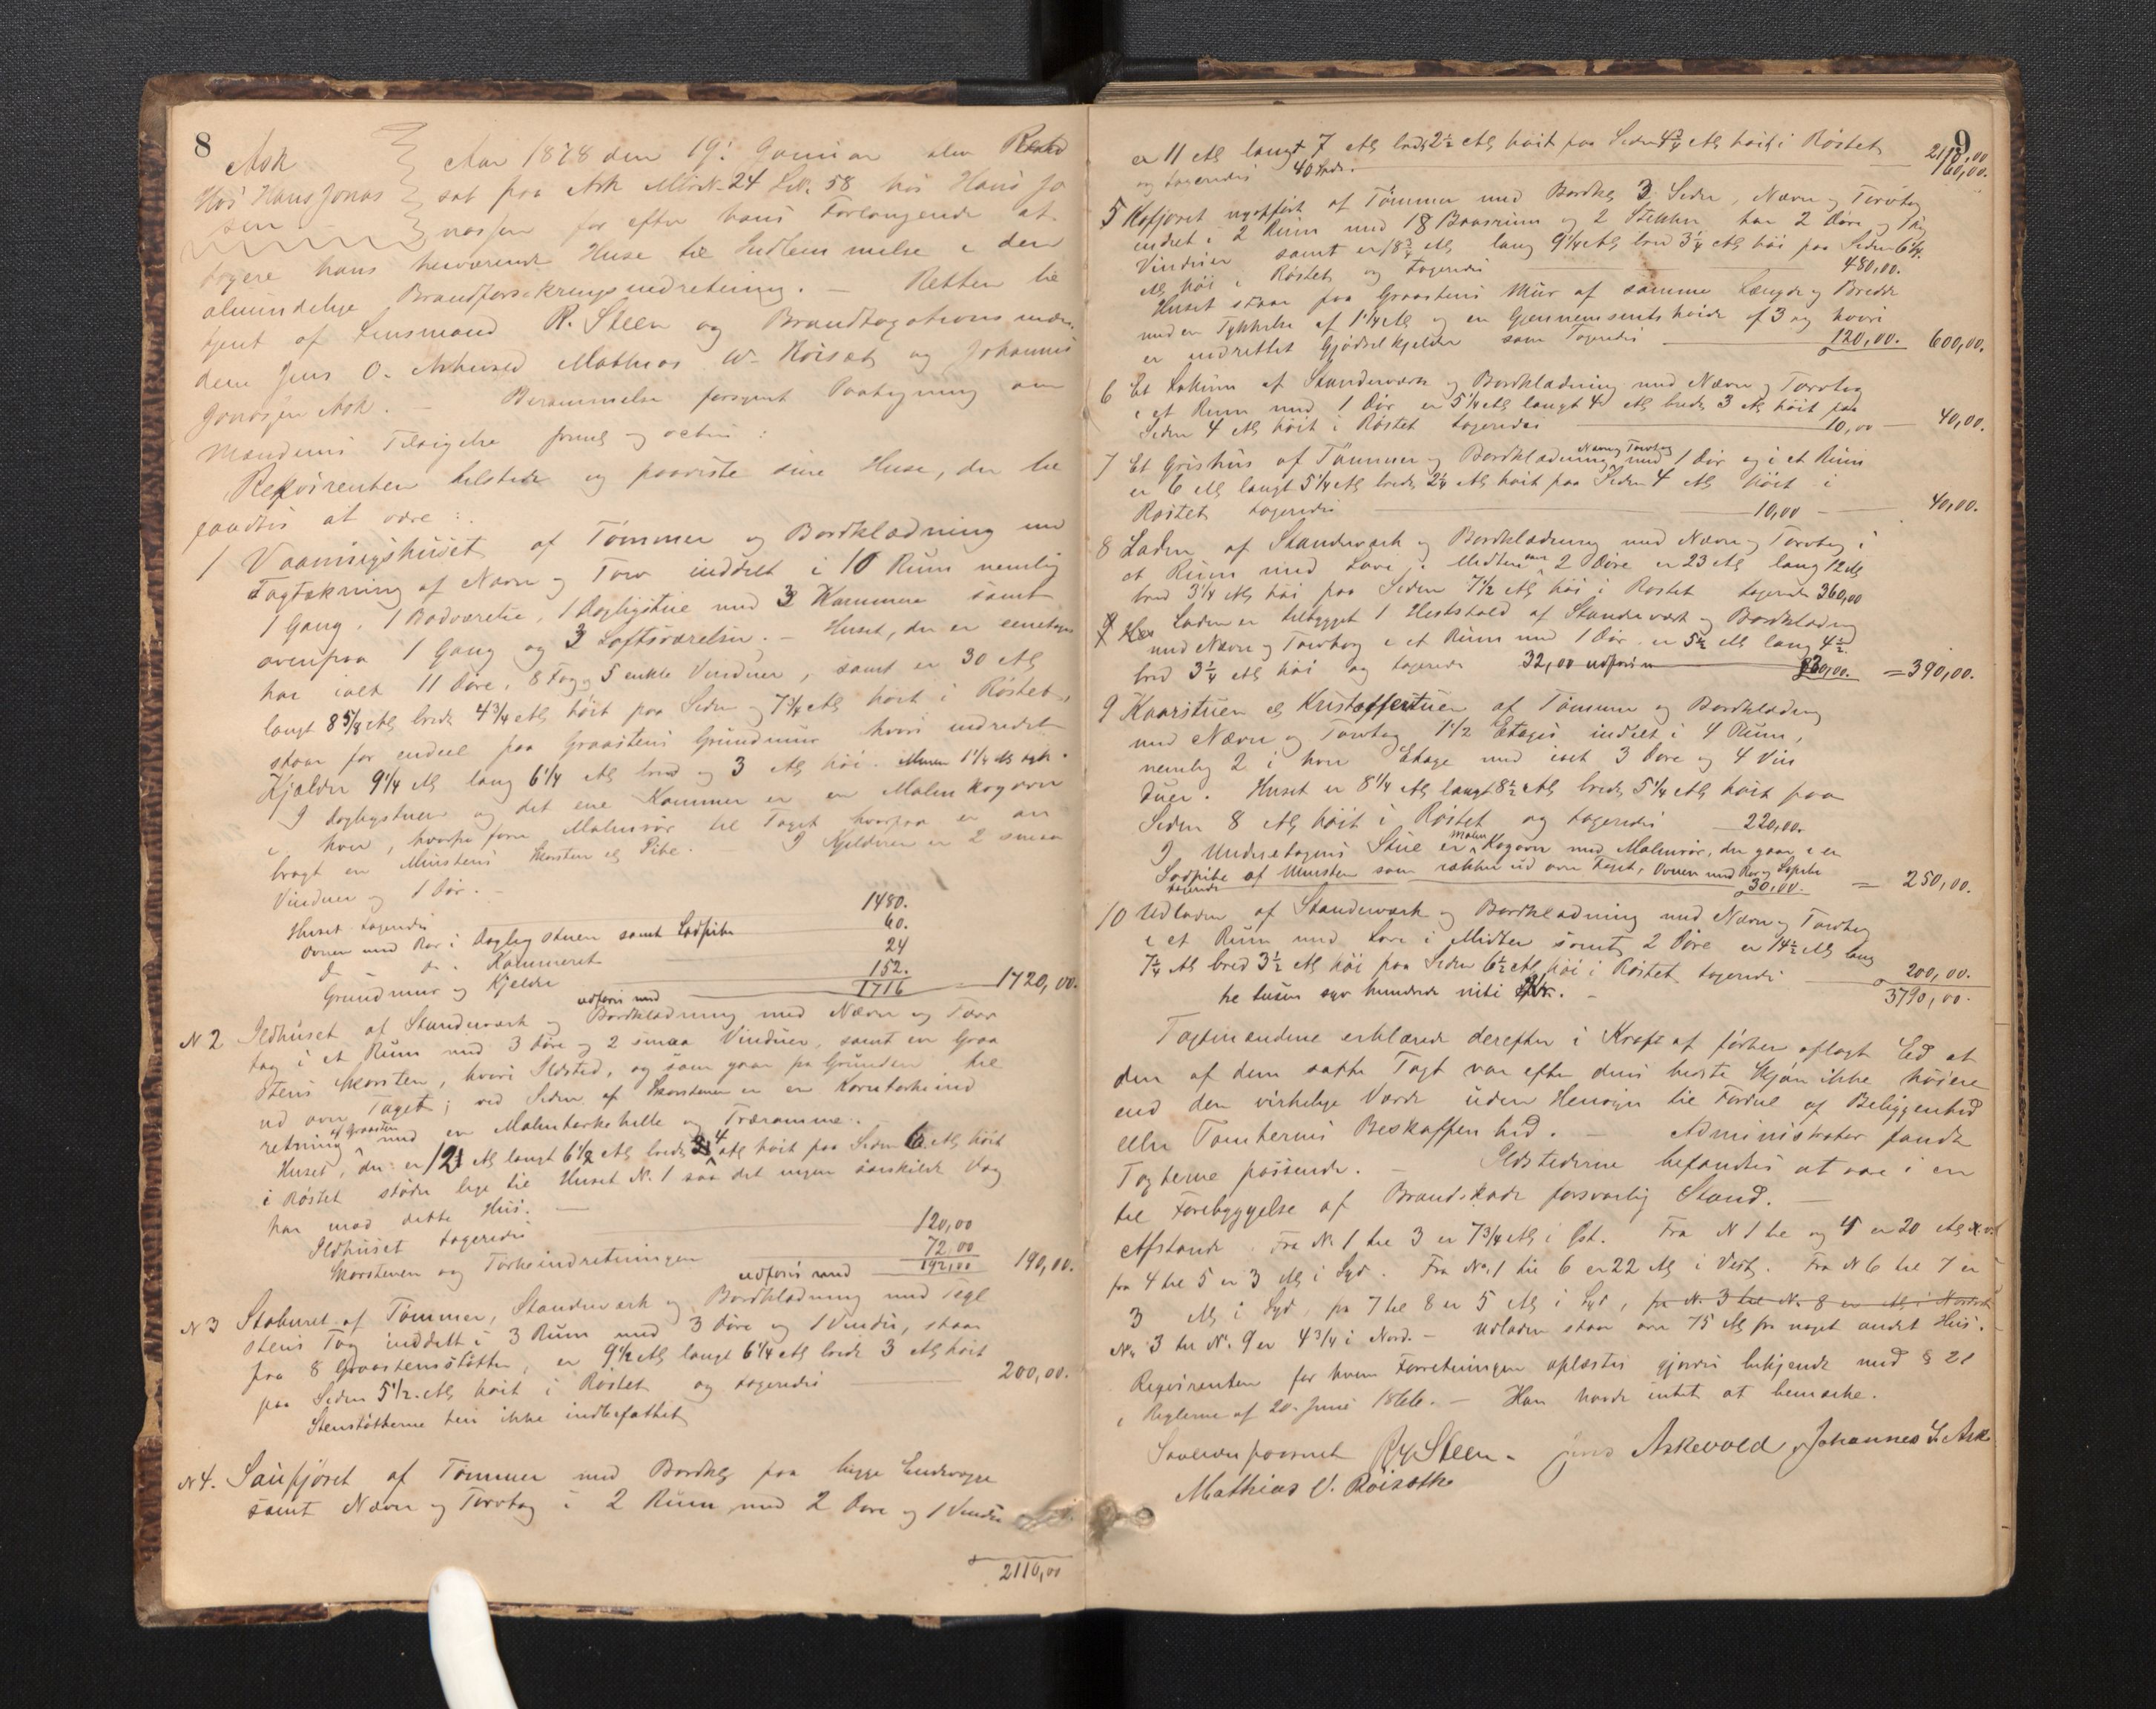 8
Ask
Hos Hans Jonas
sen
Aar 1878 den 19. Januar blev Ret
sat paa Ask MtrN. 24 LN. 58 hos Hans Jo
nassen for efter hans Forlangende at
taxere hans herværende Huse til Indlemmelse i den
almindelige Brandforsikringsindretning. – Retten be
tjent af Lensmand R. Steen og Brandtaxationsmæn
dene Jens O. Askevold Mathias W. Röisæt og Johannes
Jonassen Ask. – Berammelse forsynt Paategning om
Mændenes Tilsigelse freml og
Reqvirenten tilstede og paaviste sine Huse, der be
fandtes at være:
1 Vaaningshuset af Tömmer og Bordklædning med
Tagtækning af Næver og Torv inddelt i 10 Rum nemlig
1 Gang, 1 Badværelse, 1 Dagligstue med 3 Kammere samt
ovenpaa 1 Gang og 3 Loftsværelser. – Huset, der er eenetages
har ialt 11 Döre, 8 Fag og 5 enkle Vinduer, samt er 30 Al
langt 8 5/8 Al bredt 4 3/4 Al höit paa Siden og 7 3/4 Al höit i Röstet,
staar for endeel paa Graastens Grundmur hvori indredet
Kjælder 9 1/4 Al lang 6 1/4 Al bred og 3 Al höi. Muren 1 1/4 Al tyk.
I Dagligstuen og det ene Kammer er en Malmkogovn
i hver, hvorfra förer Malmrör til Taget hvorpaa er an
bragt en Murstens Skorsten el Pibe. – I Kjelderen er 2 smaa
Vinduer og 1 Dör. –
Huset taxeredes 1480.
Ovnen med Rör i Dagligstuen samt Lodpibe 60.
do do i Kammeret 24
Grundmur og Kjelder 152.
udföres med 1716 1720,00.
N 2 Ildhuset af Standerværk og Bordklædning med Næver og Torv
tag i et Rum med 3 Döre og 2 smaa Vinduer, samt en Graa
stens Skorsten, hvori Ildsted, og som gaar fra Grunden til
ud over Taget; ved Siden af Skorstenen er en Korntörkeind
retning af Graasten med en Malmtörkehelle og Træramme.
Huset, der er 12 Al langt 6 1/2 Al bredt 4 Al höit paa Siden 6 Al höit
i Röstet stöder lige til Huset N. 1 saa det ingen særskilt Væg
har mod dette Hus. –
Ildhuset taxeredes 120,00
Skorstenen og Törkeindretningen 72,00
udföres med 192,00 190,00.
N 3 Staburet af Tömmer, Standerværk og Bordklædning med Tegl
stens Tag inddelt i 3 Rum med 3 Döre og 1 Vindu, staar
paa 8 Graastensstötter, er 9 1/2 Al langt 6 1/4 Al bredt 3 Al höit
paa Siden 5 1/2 Al höit i Röstet og taxeredes 200,00.
Stenstötterne heri ikke indbefattet
N 4. Saufjöset af Tömmer med Bordkl paa begge Endevægge
samt Næver og Torvtag i 2 Rum med 2 Döre og 1 Vindu
2110,00
9
er 11 Al langt 7 Al bredt 2 1/2 Al höit paa Siden 4 3/4 Al höit i Röstet 2110,00
og taxeredes 160,00.
5 Kofjöset nyopfört af Tömmer med Bordkl 3 Sider, Næver og Torvtag
indret i 2 Rum med 18 Baasrum og 2 har 2 Döre og 1
Vinduer samt er 18 3/4 Al lang 9 1/4 Al bred 3 1/4 Al höi paa Siden 6 1/4
Al höi i Röstet og taxeredes 480,00.
Huset staar paa Graastens Mur af samme Længde og Bredde
med en Tykkelse af 1 1/4 Al og en Gjennemsnits höide af 3 og hvori
er indrettet Gjödselkjelder som taxeredes 120,00. 600,00.
6 Et Lokum af Standerværk og Bordklædning med Næver og Torvtag
i et Rum med 1 Dör er 5 1/4 Al langt 4 Al bredt 3 Al höit paa
Siden 4 Al höit i Röstet taxeredes 10,00 40,00.
7 Et Grishus af Tömmer og Bordklædning Næver og Torvtag med 1 Dör og i et Rum
er 6 Al langt 5 1/4 Al bredt 2 1/4 Al höit paa Siden 4 Al höit i
Röstet taxeredes 10,00 40,00.
8 Laden af Standerværk og Bordklædning med Næver og Torvtag i
et Rum med Lave i Midten 2 Döre er 23 Al lang 12 Al
bred 3 1/4 Al höi paa Siden 7 1/2 Al höi i Röstet taxeredes 360,00
Laden er tilbygget 1 Hestestald af Standerværk og Bordklædning
med Næver og Torvtag i et Rum med 1 Dör er 5 1/2 Al lang 4 1/2
bred 3 1/4 Al höi og taxeredes 32,00 udföres m 30,00. = 390,00.
9 Kaarstuen el Kristofferstuen af Tömmer og Bordklædning
med Næver og Torvtag 1 1/2 Etages inddelt i 4 Rum,
nemlig 2 i hver Etage med ialt 3 Döre og 4 Vin
duer. Huset er 8 1/4 Al langt 8 1/2 Al bredt 5 1/4 Al höit paa
Siden 8 Al höit i Röstet og taxeredes 220,00.
I Underetagens Stue er Malm Kogovn med Malmrör, der gaar i en
Lodpibe af Mursten som rækker ud over Taget, Ovnen med Rör og Lodpibe
taxeredes 30,00. = 250,00.
10 Udladen af Standerværk og Bordklædning med Næver og Torvtag
i et Rum med Lave i Midten samt 2 Döre er 14 1/2 Al lang
7 1/4 Al bred 3 1/2 Al höi paa Siden 6 1/2 Al höi i Röstet taxeredes 200,00.
tre tusen syv hundrede nitti Kr. – 3790,00.
Taxtmændene erklærede derefter i Kraft af förhen aflagt Eed at
den af dem satte Taxt var efter deres bedste Skjön ikke höiere
end den virkelige Værdi uden Hensyn til Fordel af Beliggenhed
eller Tomternes Beskaffenhed. – Administrator fandt
Taxterne passende. – Ildstederne befandtes at være i en
til Forebyggelse af Brandskade forsvarlig Stand. –
Afstande: Fra N. 1 til 3 er 7 3/4 Al i Öst. Fra N 1 til og 4 er 20 Al
fra 4 til 5 er 3 Al i Syd. Fra No. 1 til 6 er 22 Al i Vest. Fra N 6 til 7 er
3 Al i Syd, fra 7 til 8 er 5 Al i Syd, fra N. 3 til N. 8 er Al i
N. 3 til N. 9 er 4 3/4 i Nord. – Udladen staar over 75 Al fra noget andet Hus.
Reqvirenten for hvem Forretningen oplæstes gjordes bekjendt med § 21
i Reglerne af 20. Juni 1866. – Han havde intet at bemærke.
Saaledes passeret R Steen. Jens Askevold Johannes J. Ask
Mathias V. Röisæth